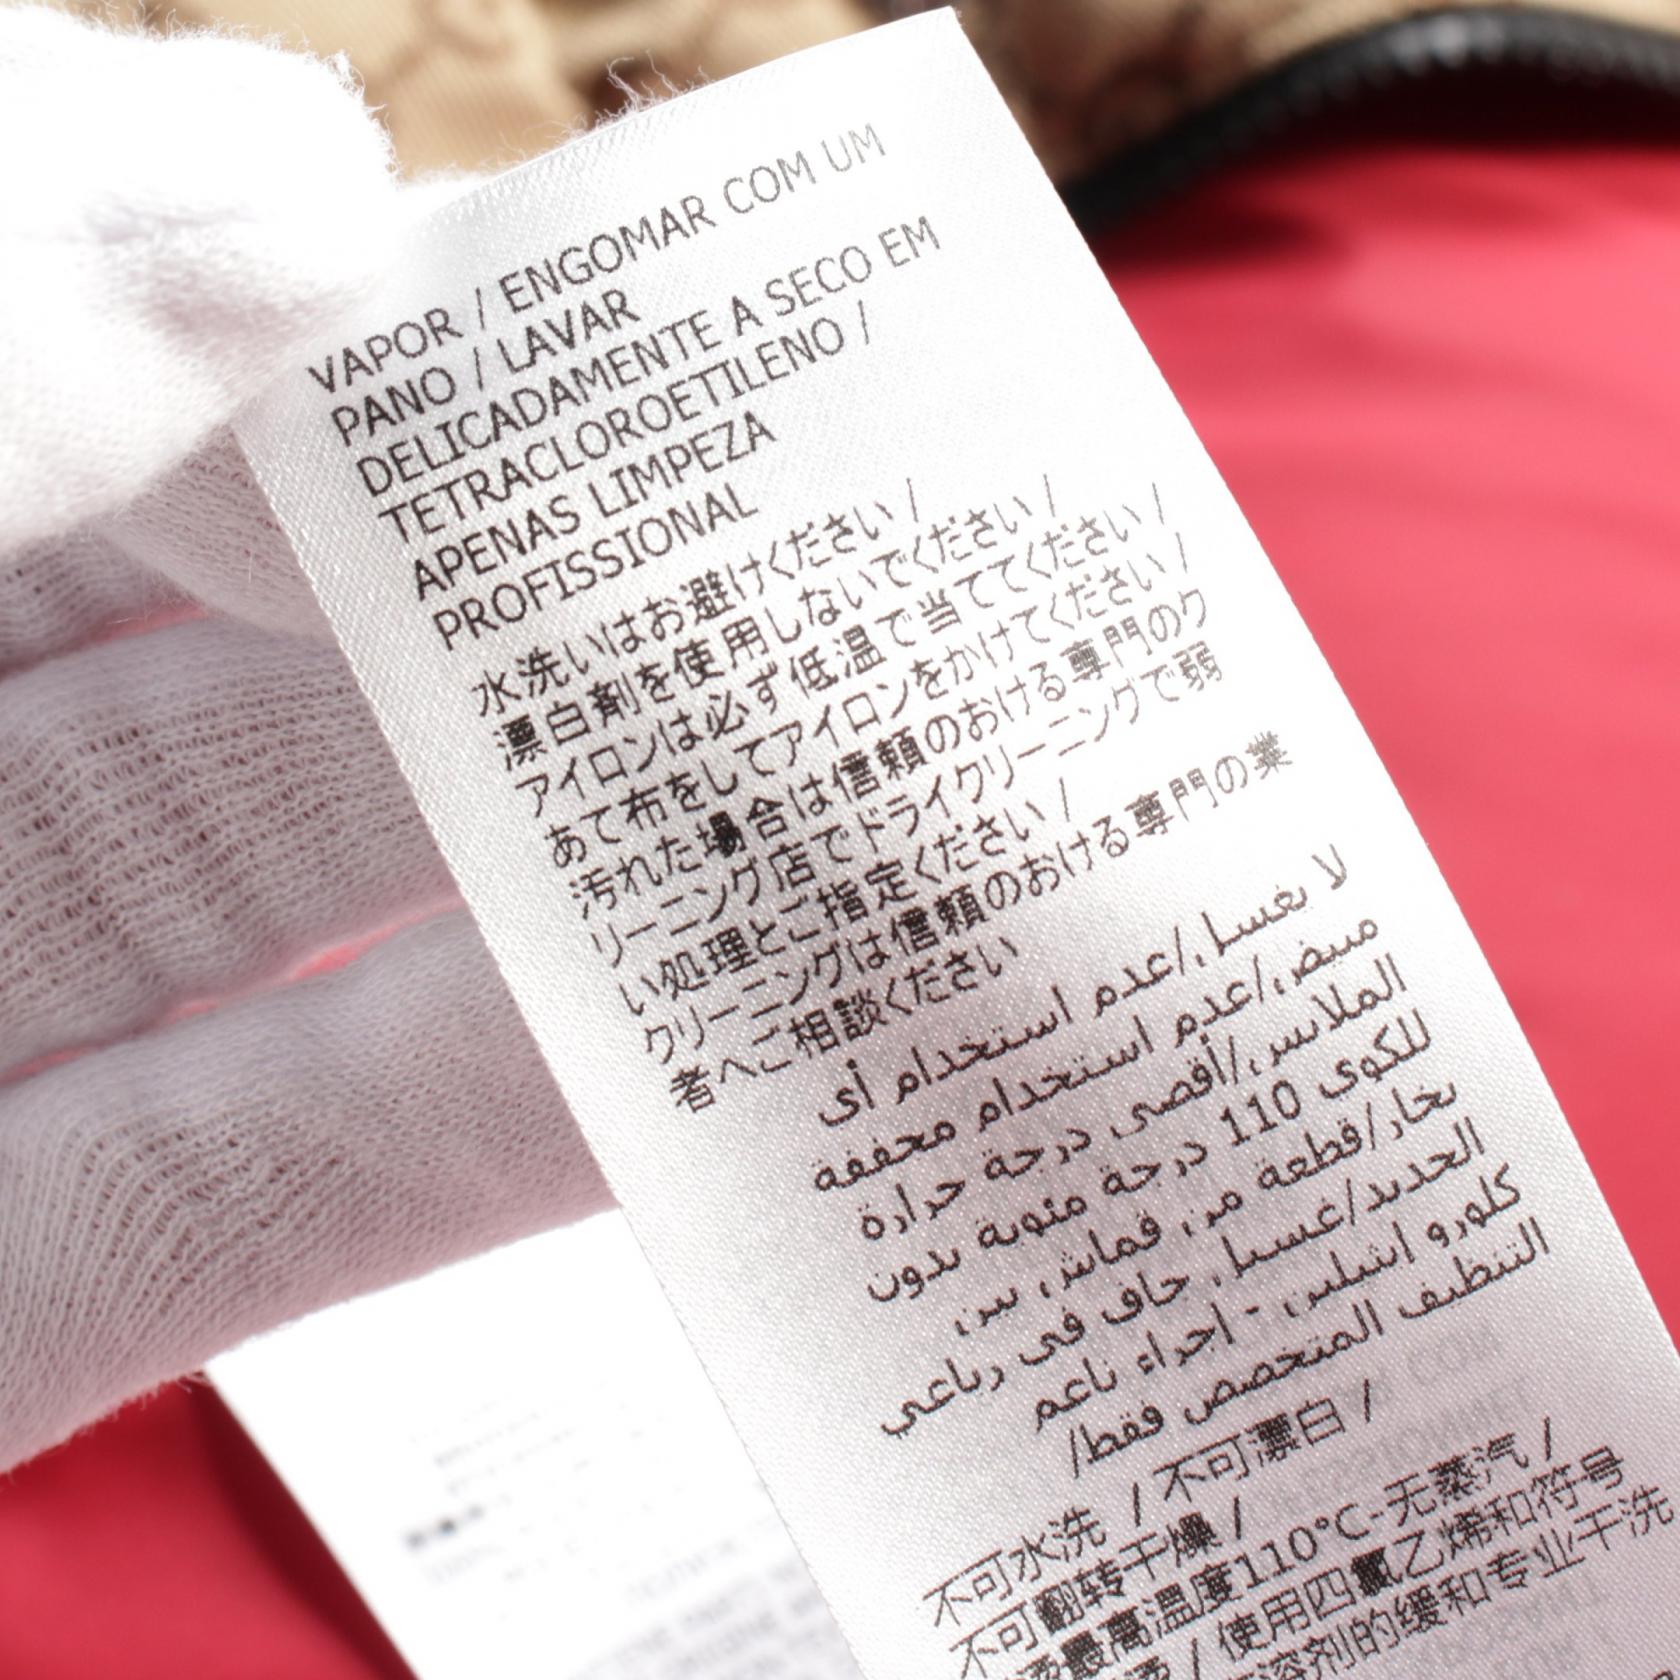 VAPOR / ENGOMAR COM UM
PANO / LAVAR
DELICADAMENTE A SECO EM
TETRACLOROETILENO /
APENAS LIMPEZA
PROFISSIONAL
水洗いはお避けください /
漂白剤を使用しないでください /
アイロンは必ず低温で当ててください /
あて布をしてアイロンをかけてください /
汚れた場合は信頼のおける専門のク
リーニング店でドライクリーニングで弱
い処理とご指定ください /
クリーニングは信頼のおける専門の業
者へご相談ください
لا يغسل/عدم استخدام أى
مبيض/عدم استخدام مجففة
الملابس/أقصى درجة حرارة
للكوى 110 درجة مئوية بدون
بخار/قطعة من قماش بين
الحديد/غسيل جاف فى رباعي
كلورو ايثيلين - اجراء ناعم
التنظيف المتخصص فقط/
不可水洗 / 不可漂白 /
不可翻转干燥 /
最高温度110°C-无蒸汽 /
/ 使用四氯乙烯和符号
溶剂的缓和专业干洗